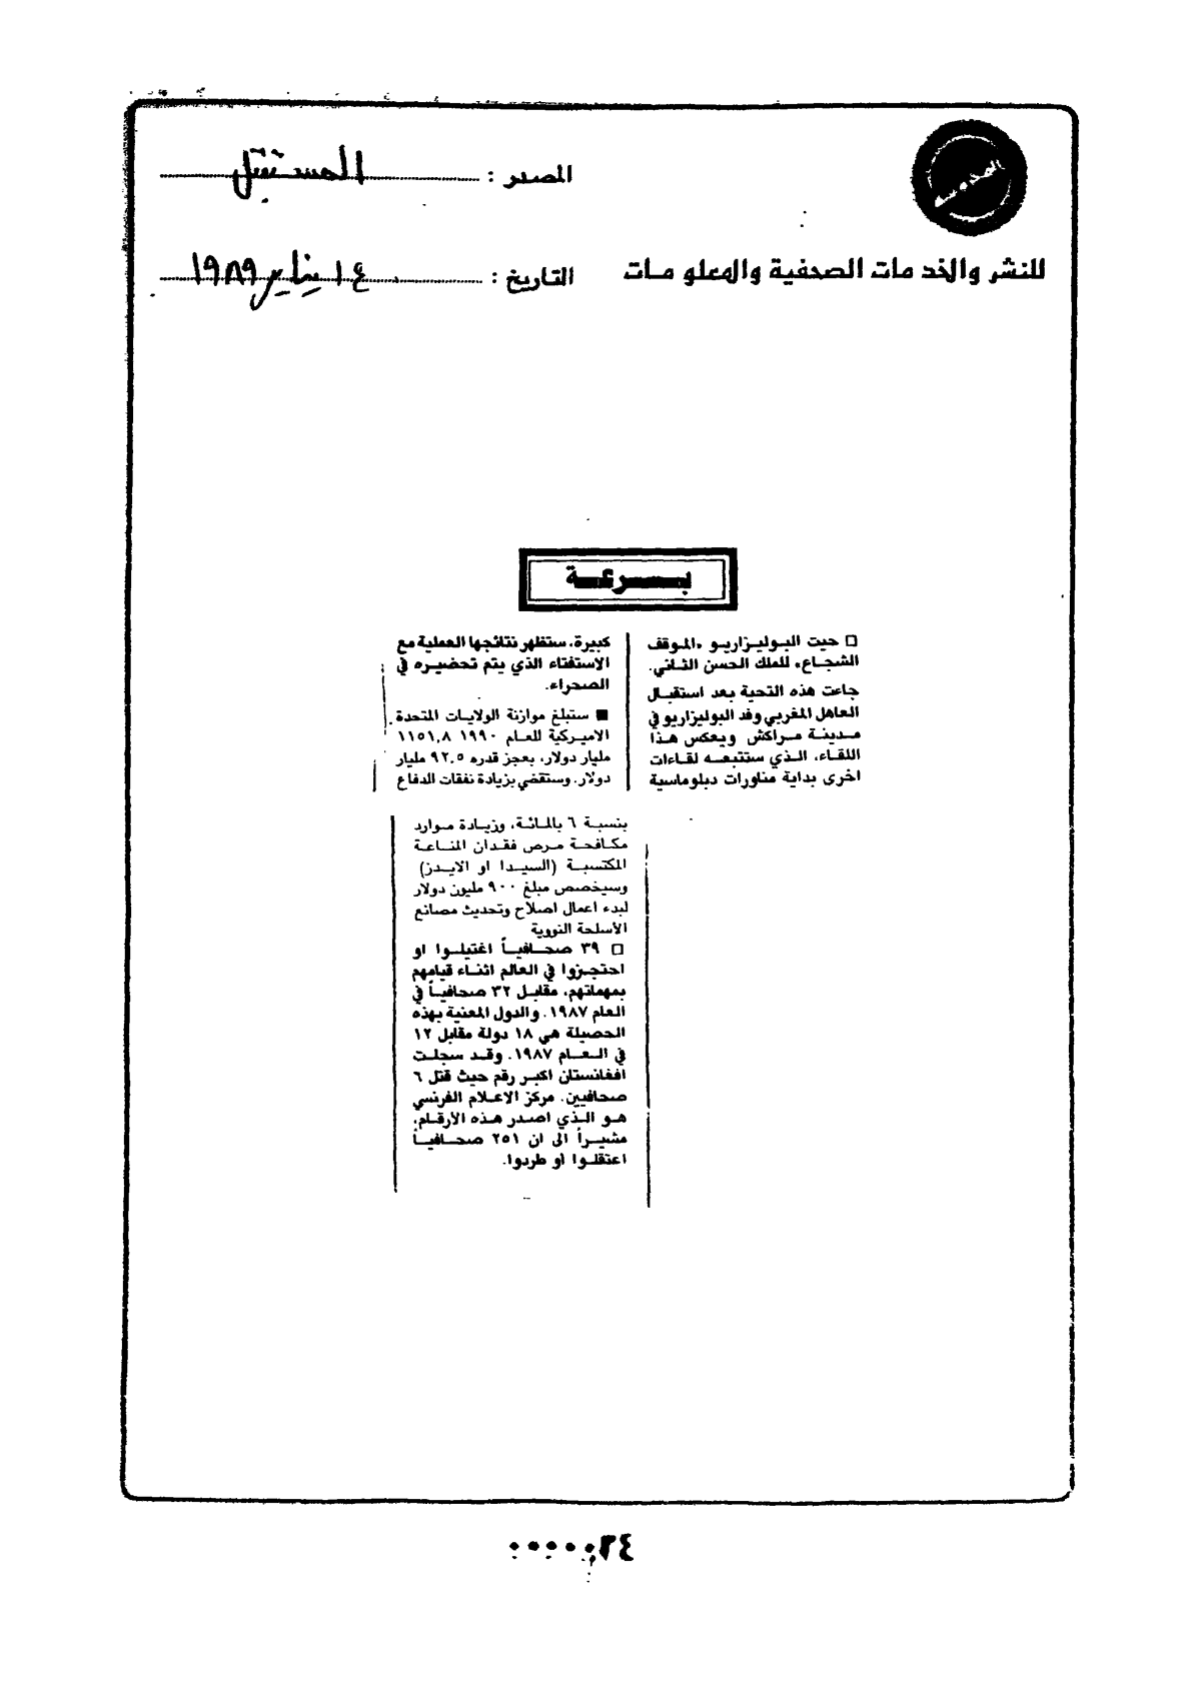 المصدر : المستقبل
للنشر والخدمات الصحفية والمعلومات
التاريخ : ١٤ يناير ١٩٨٩
بسرعة
□ حيت البوليزاريو «الموقف
الشجاع» للملك الحسن الثاني.
جاءت هذه التحية بعد استقبال
العاهل المغربي وفد البوليزاريو في
مدينة مراكش ويعكس هذا
اللقاء، الذي ستتبعه لقاءات
اخرى بداية مناورات دبلوماسية
كبيرة، ستظهر نتائجها العملية مع
الاستفتاء الذي يتم تحضيره في
الصحراء.
■ ستبلغ موازنة الولايات المتحدة
الاميركية للعام ١٩٩٠ ١١٥١,٨
مليار دولار، بعجز قدره ٩٢,٥ مليار
دولار. وستقضي بزيادة نفقات الدفاع
بنسبة ٦ بالمائة، وزيادة موارد
مكافحة مرض فقدان المناعة
المكتسبة (السيدا او الايدز)
وسيخصص مبلغ ٩٠٠ مليون دولار
لبدء اعمال اصلاح وتحديث مصانع
الأسلحة النووية
□ ٣٩ صحافياً اغتيلوا او
احتجزوا في العالم اثناء قيامهم
بمهماتهم، مقابل ٣٢ صحافياً في
العام ١٩٨٧. والدول المعنية بهذه
الحصيلة هي ١٨ دولة مقابل ١٢
في العام ١٩٨٧. وقد سجلت
افغانستان اكبر رقم حيث قتل ٦
صحافيين. مركز الاعلام الفرنسي
هو الذي اصدر هذه الأرقام،
مشيراً الى ان ٢٥١ صحافياً
اعتقلوا او طردوا.